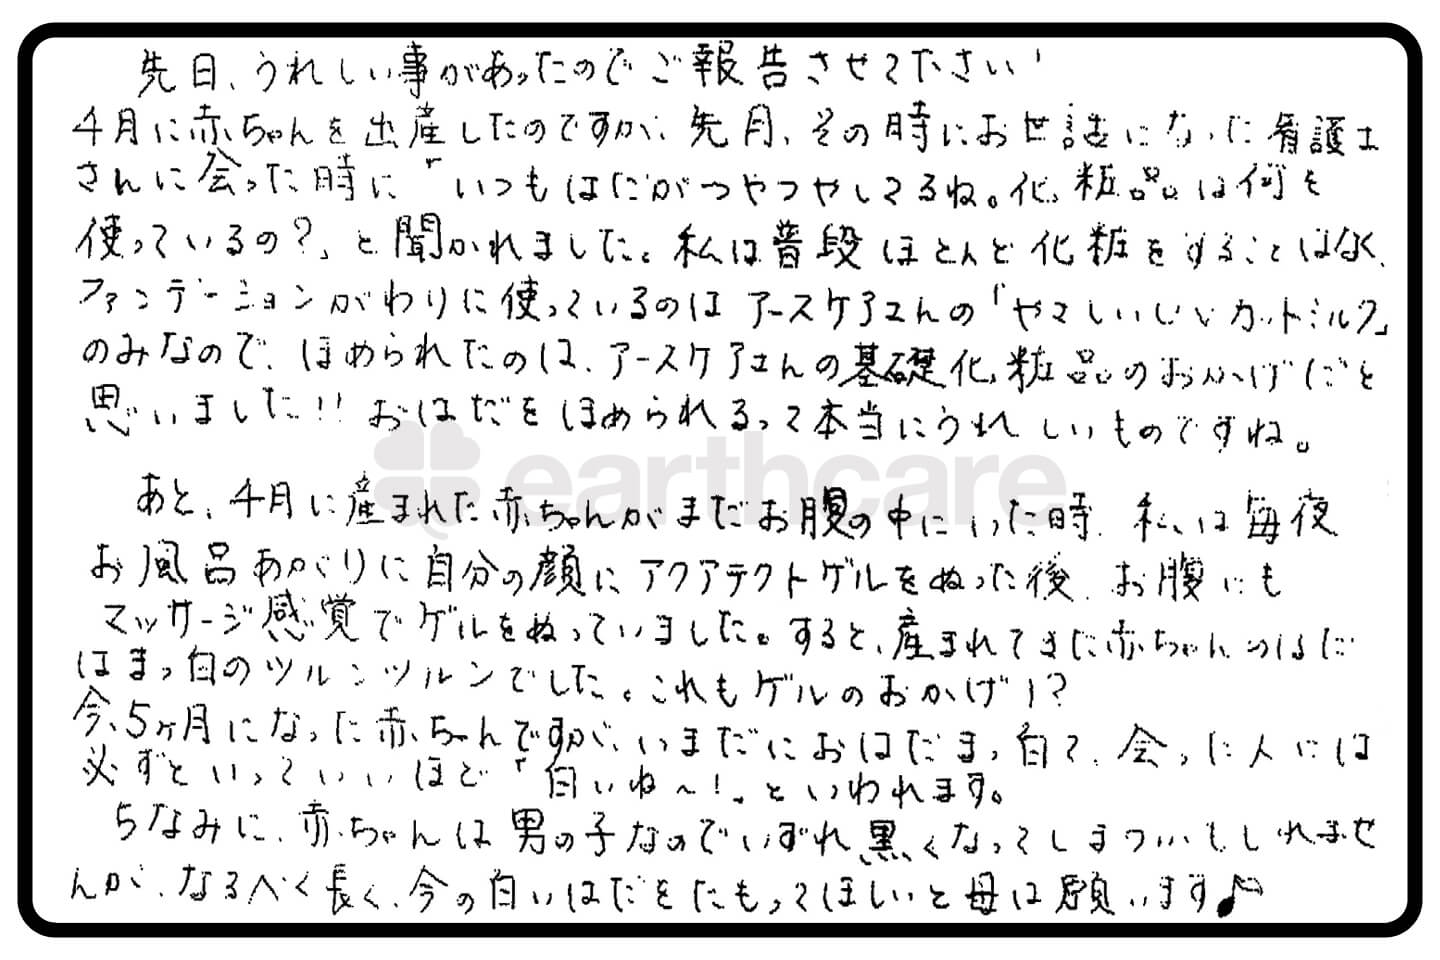 先日、うれしい事があったのでご報告させて下さい!
4月に赤ちゃんを出産したのですが、先月、その時にお世話になった看護士
さんに会った時に「いつもはだがつやつやしてるね。化粧品は何を
使っているの?」と聞かれました。私は普段ほとんど化粧をすることはなく、
ファンデーションがわりに使っているのはアースケアさんの「やさしいUVカットミルク」
のみなので、ほめられたのは、アースケアさんの基礎化粧品のおかげだと
思いました!!おはだをほめられるって本当にうれしいものですね。
earthcare
あと、4月に産まれた赤ちゃんがまだお腹の中にいた時、私は毎夜
お風呂あがりに自分の顔にアクアテクトゲルをぬった後、お腹にも
マッサージ感覚でゲルをぬっていました。すると、産まれてきた赤ちゃんのはだ
はまっ白のツルンツルンでした。これもゲルのおかげ!?
今、5ヶ月になった赤ちゃんですが、いまだにおはだまっ白で、会った人には
必ずといっていいほど「白いね~!」といわれます。
ちなみに、赤ちゃんは男の子なのでいずれ黒くなってしまうかもしれませ
んが、なるべく長く、今の白いはだをたもってほしいと母は願います♪